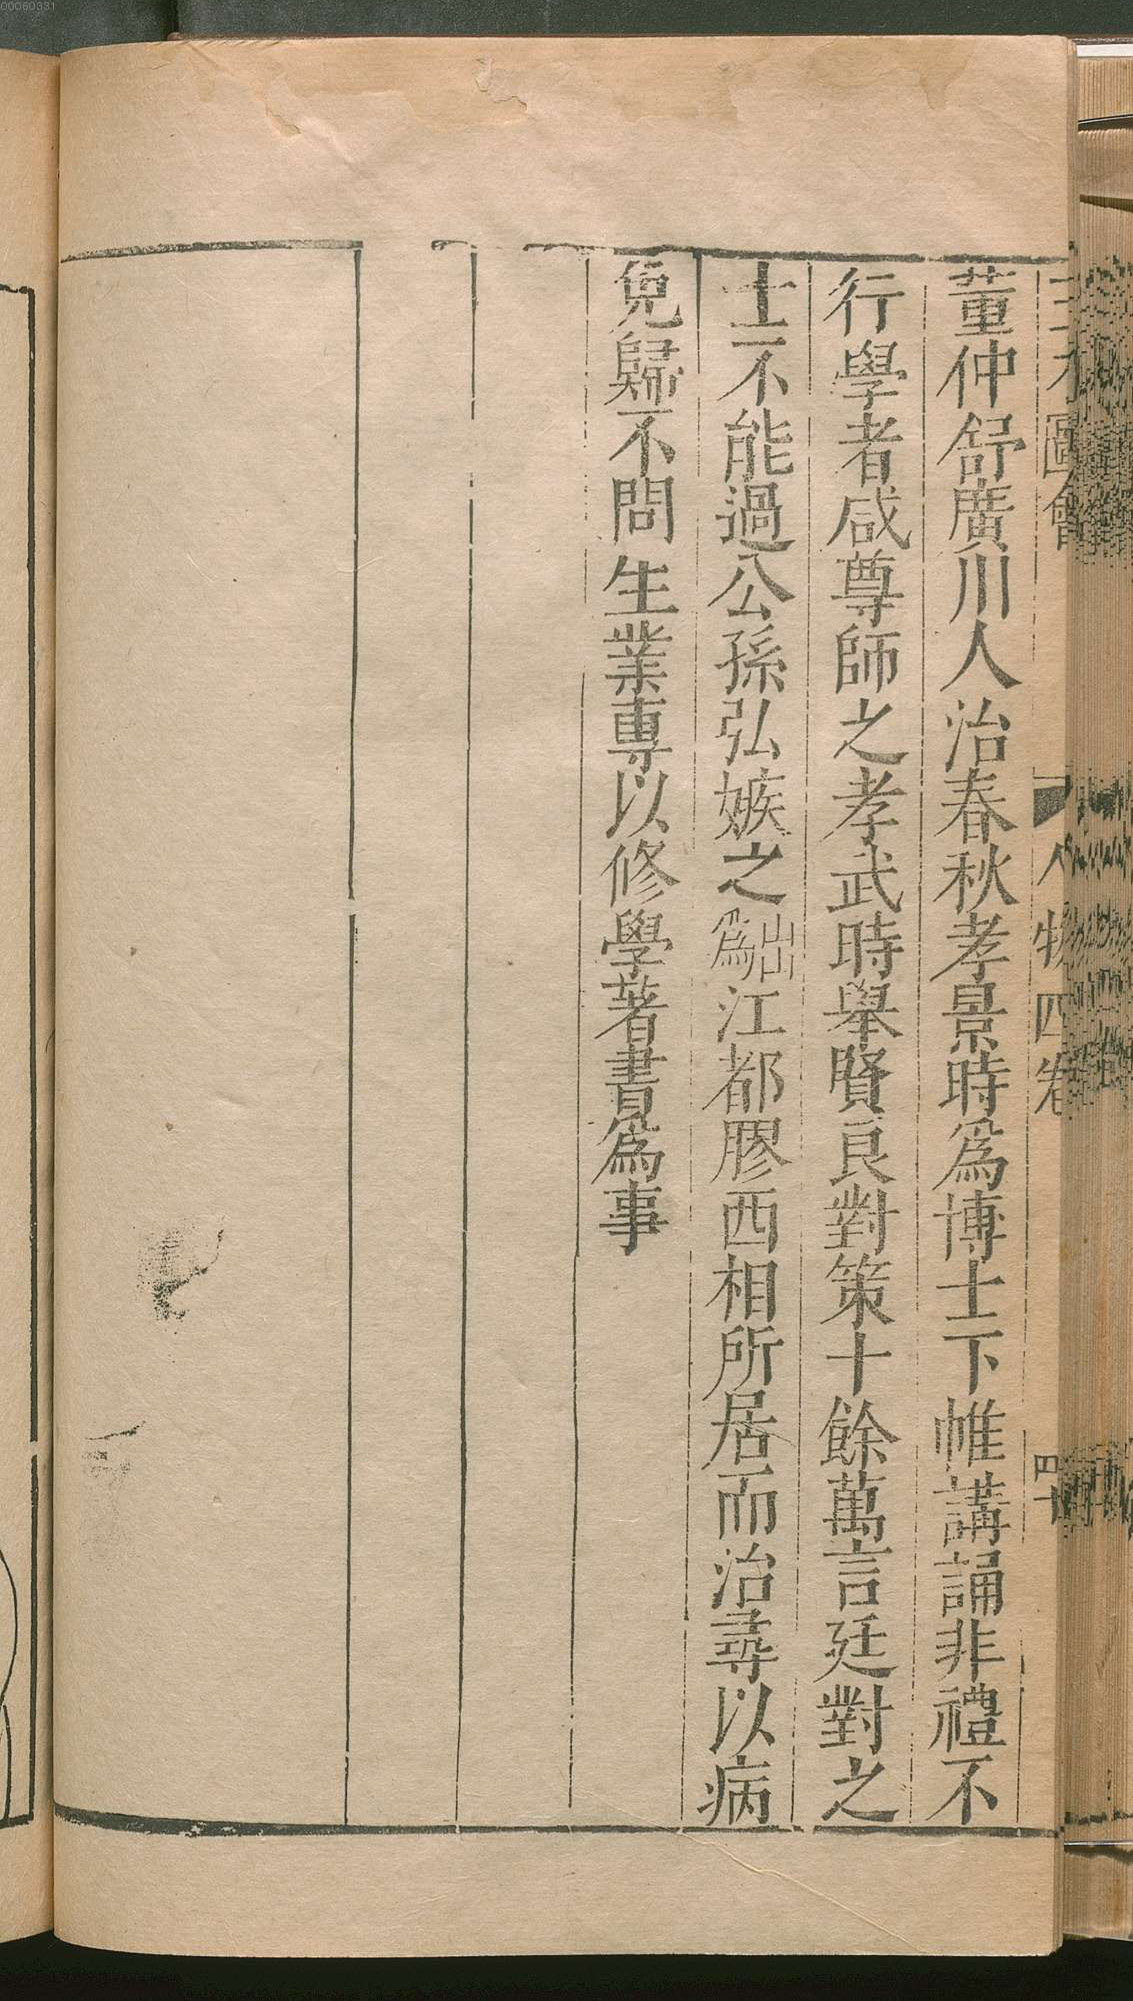 00060331
三才圖會
人物四卷
四十
董仲舒廣川人治春秋孝景時爲博士下帷講誦非禮不
行學者咸尊師之孝武時舉賢良對策十餘萬言廷對之
士不能過公孫弘嫉之出爲江都膠西相所居而治尋以病
免歸不問生業專以修學著書爲事